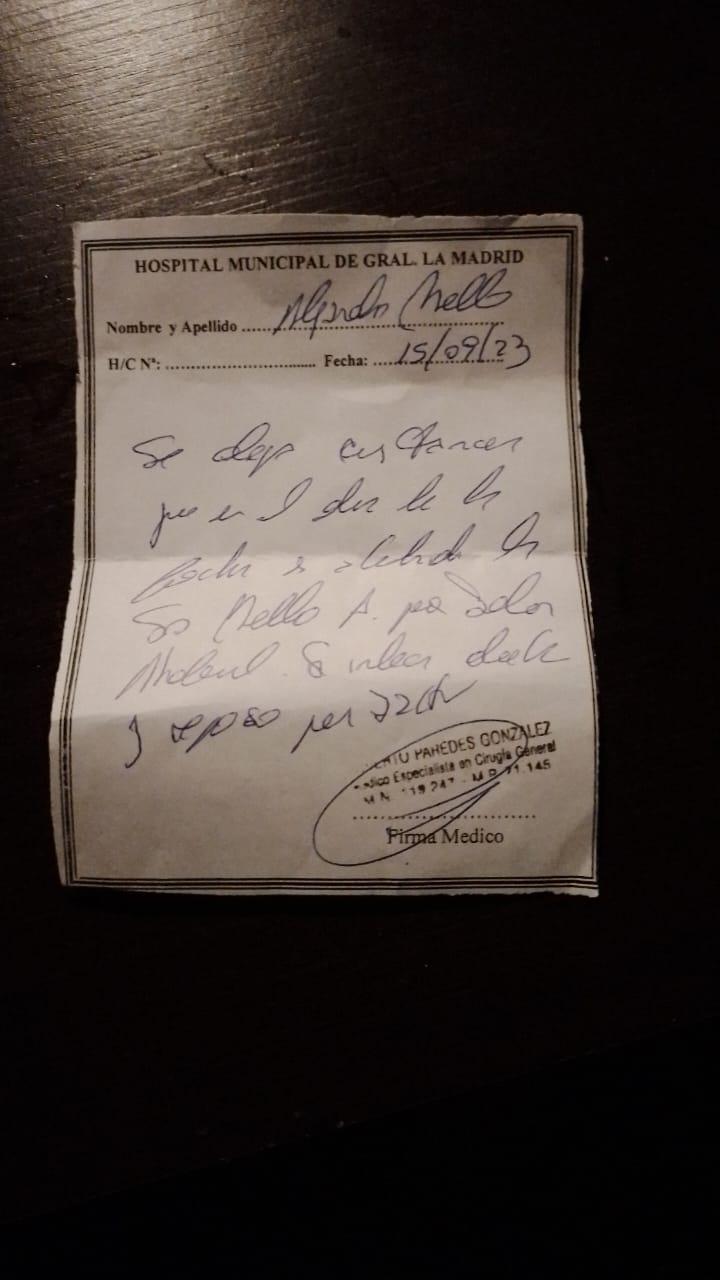 HOSPITAL MUNICIPAL DE GRAL. LA MADRID
Nombre y Apellido ..... Mello
H/C Nº: ........................... Fecha: ....15/09/23
Se deja constancia
que en el dia de la
fecha es atendido
Sr Mello A. por dolor
Abdominal. Se indica dieta
y reposo por 72 hs
PAREDES GONZALEZ
Medico Especialista en Cirugía General
M.N. 119 247 - M.P. 71.145
Firma Medico